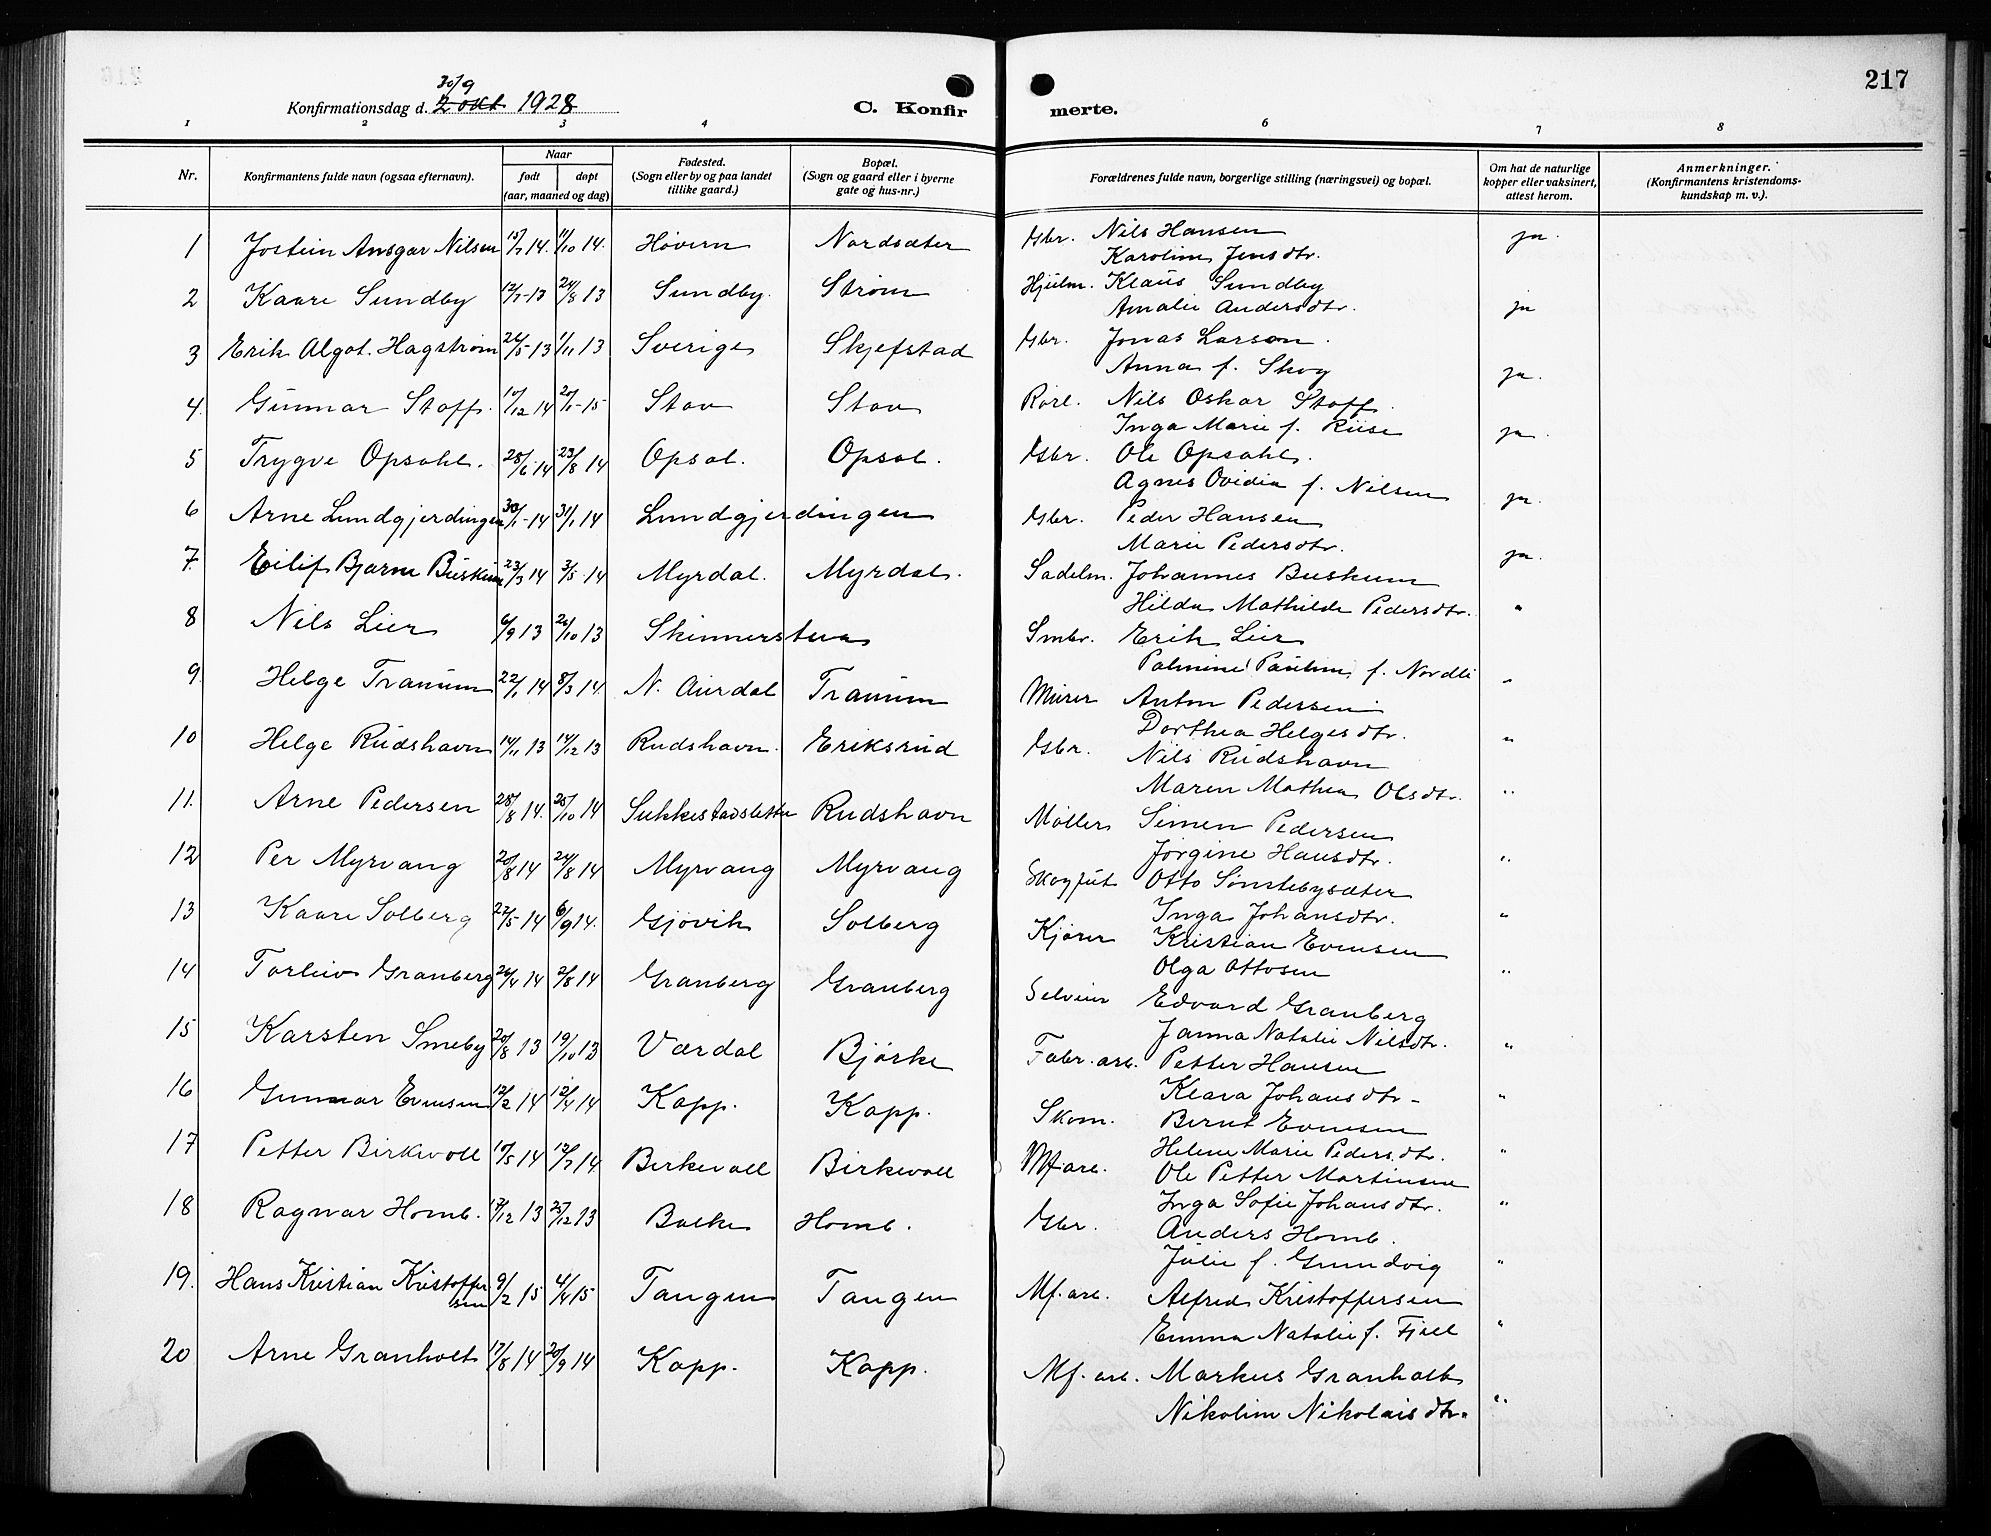 217
30/9
Konfirmationsdag d. 2 okt 1928
C. Konfirmerte.
1 2 3 4 6 7 8
Nr.
Konfirmantens fulde navn (ogsaa efternavn).
Naar
født
døpt
(aar, maaned og dag)
Fødested.
(Sogn eller by og paa landet
tillike gaard.)
Bopæl.
(Sogn og gaard eller i byerne
gate og hus-nr.)
Forældrenes fulde navn, borgerlige stilling (næringsvei) og bopæl.
Om hat de naturlige
kopper eller vaksinert,
attest herom.
Anmerkninger.
(Konfirmantens kristendoms-
kundskap m. v.).
1 Jostein Ansgar Nilsen 15/7 14. 11/10 14. Hövern Nordsæter Gbr. Nils Hansen ja.
Karoline Jensdtr.
2 Kaare Sundby 12/7-13 24/8 13 Sundby. Strøm Hjulm. Klaus Sundby
Amalie Andersdtr. ja
3 Erik Algot. Hagstrøm 26/5-13 1/11 13 Sverige Skjefstad Gbr. Jonas Larson.
Anna f. Skog ja.
4. Gunnar Stoff. 10/12 14 20/1-15 Stav Stav Rørl. Nils Oskar Stoff.
Inga Marie f. Riise ja.
5 Trygve Opsahl. 28/6-14 23/8 14 Opsal. Opsal. Gbr. Ole Opsahl.
Agnes Ovidia f. Nilsen ja.
6 Arne Lundgjerdingen 30/1-14 31/1 14 Lundgjerdingen Gbr. Peder Hansen
Marie Pedersdtr. ja.
7. Eilif Bjarne Buskum 23/3 14 3/5-14 Myrdal. Myrdal. Sadelm. Johannes Buskum
Hilda Mathilde Pedersdtr. "
8 Nils Lier 6/9 13 26/10 13 Skinnerstua Smbr. Erik Lier
Palmine Pauline f. Nordli "
9. Helge Tranum 22/1 14 8/3 14. N. Aurdal Tranum Murer Anton Pedersen
Dorthea Helgesdtr. "
10 Helge Rudshavn 14/11 13 14/12 13 Rudshavn. Eriksrud Gbr. Nils Rudshavn
Maren Mathea Olsdtr. "
11. Arne Pedersen 28/8 14. 25/10 14 Sukkestadsletta Rudshavn Møller Simen Pedersen
Jørgine Hansdtr. "
12 Per Myrvang 20/8 14 24/8 14 Myrvang Myrvang Otto Sønstebysæter
Inga Johansdtr. "
13 Kaare Solberg 22/5 14 6/9 14. Gjøvik Solberg Kjører Kristian Evensen
Olga Ottosen "
14 Torleiv Granberg 26/4 14 2/8 14 Granberg Granberg Selveier Edvard Granberg
Janna Natalie Nilsdtr. "
15 Karsten Smeby 20/8 13 19/10 13 Værdal Bjørke Fabr. arb. Petter Hansen
Klara Johansdtr. "
16 Gunnar Evensen 12/2 14 12/4 14 Kapp. Kapp. Skom. Bernt Evensen
Helene Marie Pedersdtr. "
17 Petter Birkevoll 10/5 14 12/7 14 Birkevoll Birkevoll Mf arb. Ole Petter Martinsen
Inga Sofie Johansdtr. "
18 Ragnar Homb. 17/12 13 27/12 13 Balke Homb. Gbr. Anders Homb.
Julie f. Grundvig "
19. Hans Kristian Kristoffersen 9/2 15 4/4 15 Tangen Tangen Mf. arb. Alfred Kristoffersen
Emma Natalie f. Fjell "
20 Arne Granholt 17/8 14 20/9 14 Kapp. Kapp. Mf. arb. Markus Granholt
Nikoline Nikolaisdtr. "